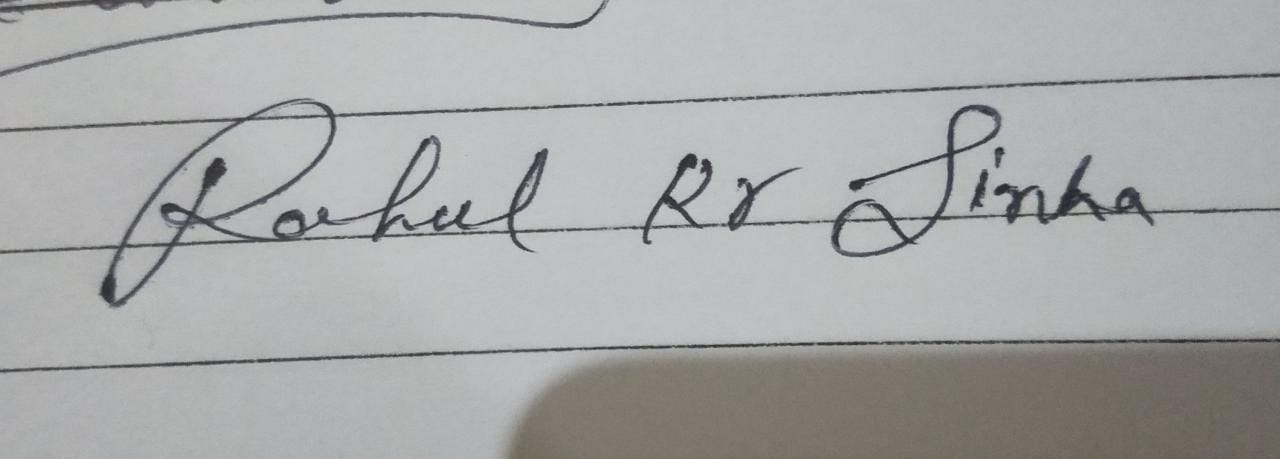 Rahul Kr Sinha